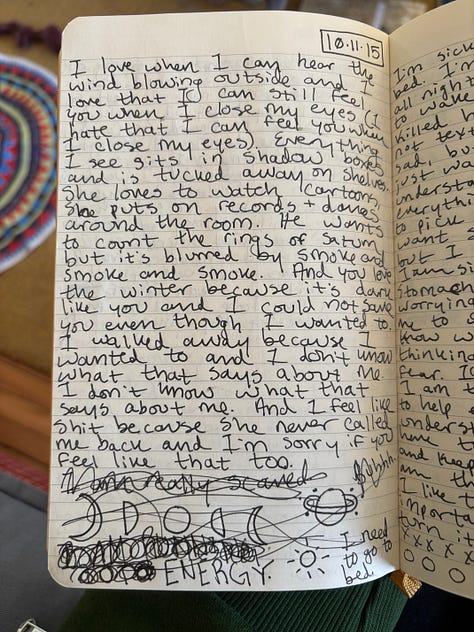 10.11.15
I love when I can hear the
wind blowing outside and I
love that I can still feel
you when I close my eyes (I
hate that I can feel you when
I close my eyes). Everything
I see sits in shadow boxes
and is tucked away on shelves.
She loves to watch cartoons,
She puts on records + dances
around the room. He wants
to count the rings of Saturn
but it's blurred by smoke and
smoke and smoke. And you love
the winter because it's dark
like you and I could not save
you even though I wanted to.
I walked away because I
wanted to and I don't know
what that says about me.
I don't know what that
says about me. And I feel like
shit because she never called
me back and I'm sorry if you
feel like that too.
really scared
ENERGY.
I need
to go to
bed.
I'm sick
bed. I'm
all nigh
to wake
killed
not tex
sad, bu
just wa
underst
everythi
to pick
want s
but I
I am si
stomach
worrying
me to s
know w
thinking
fear. I
I am
to help
underst
have to
and keep
am th
I like t
importa
turn it
x x x x x